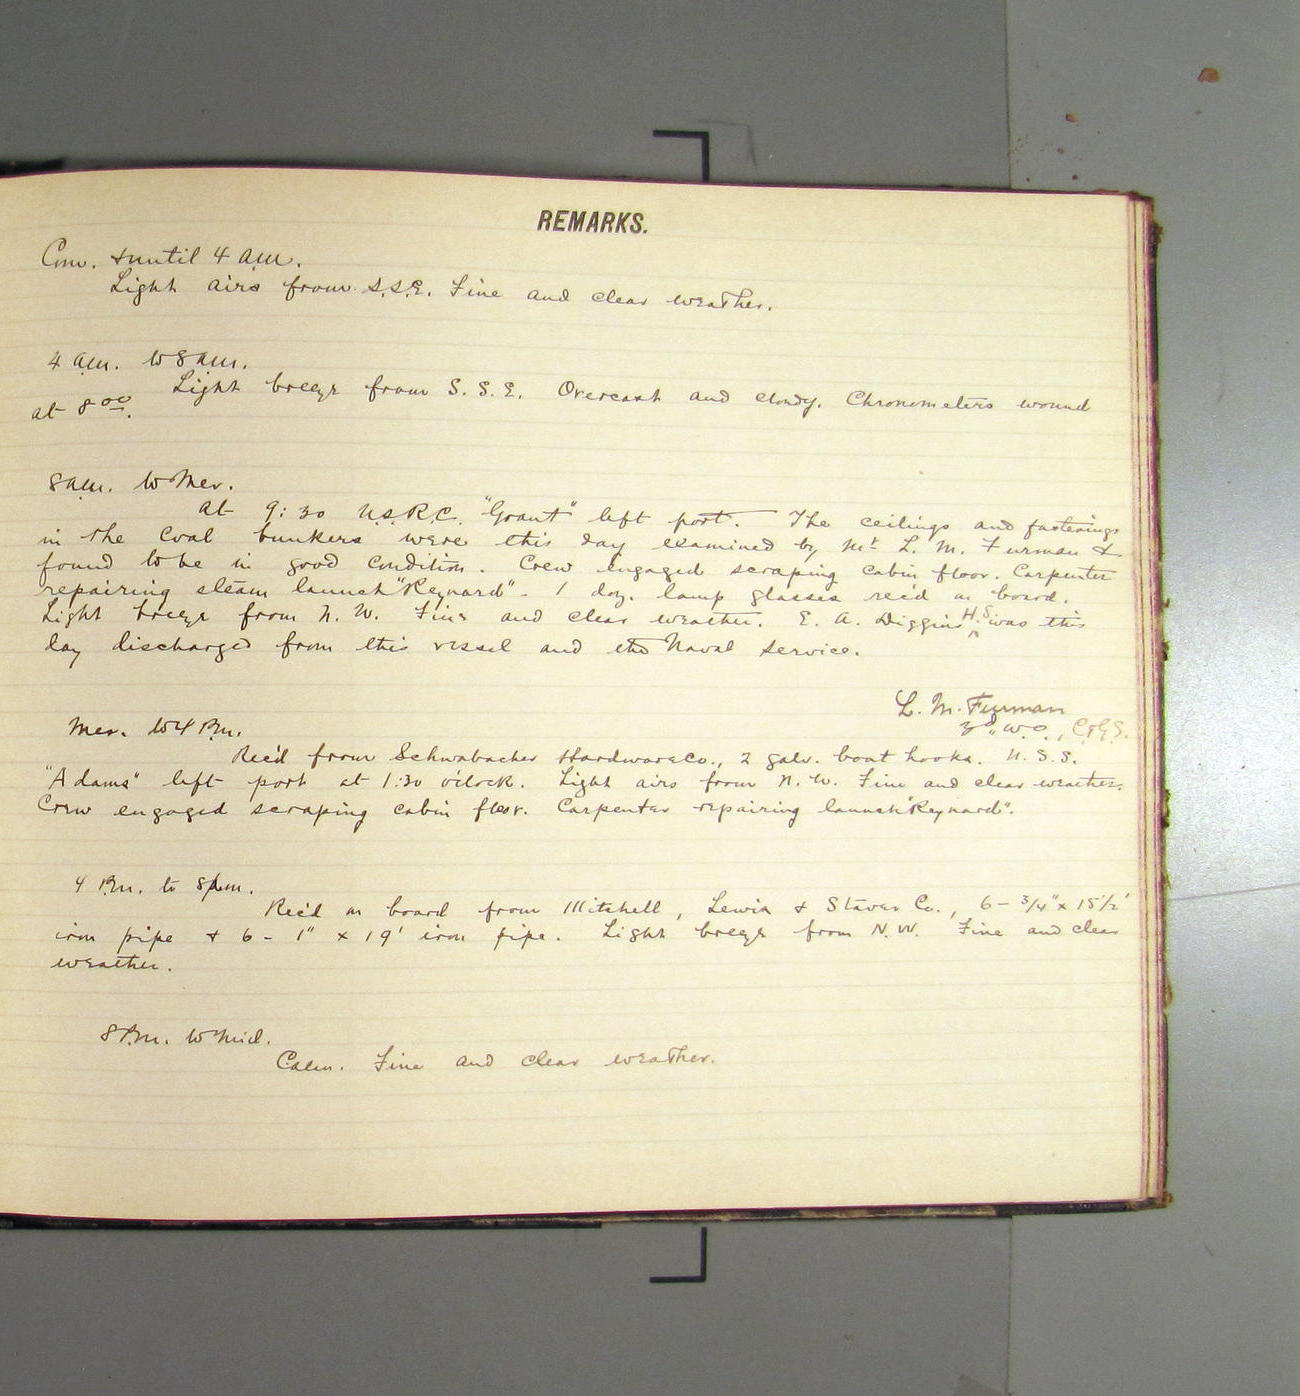 REMARKS.
Com. & until 4 a.m.
Light airs from S.S.E. Fine and clear weather.
4 a.m. to 8 a.m.
Light breeze from S.S.E. Overcast and cloudy. Chronometers wound
at 8 00.
8 a.m. to Mer.
At 9:30 U.S.R.C. "Grant" left port. The ceilings and fastenings
in the coal bunkers were this day examined by Mr. L. M. Furman &
found to be in good condition. Crew engaged scraping cabin floor. Carpenter
repairing steam launch "Reynard" - 1 doz. lamp glasses rec'd on board.
Light breeze from N.W. Fine and clear weather. E. A. Diggins H.S. was this
day discharged from this vessel and the Naval Service.
L. M. Furman
3d W.O., C&GS.
Mer. to 4 P.m.
Rec'd from Schwabacher Hardware Co., 2 galv. boat hooks. U.S.S.
"Adams" left port at 1:30 o'clock. Light airs from N.W. Fine and clear weather.
Crew engaged scraping cabin floor. Carpenter repairing launch "Reynard".
4 P.m. to 8 p.m.
Rec'd on board from Mitchell, Lewis & Staver Co., 6 - 3/4" x 15 1/2'
iron pipe & 6 - 1" x 19' iron pipe. Light breeze from N.W. Fine and clear
weather.
8 P.m. to Mid.
Calm. Fine and clear weather.